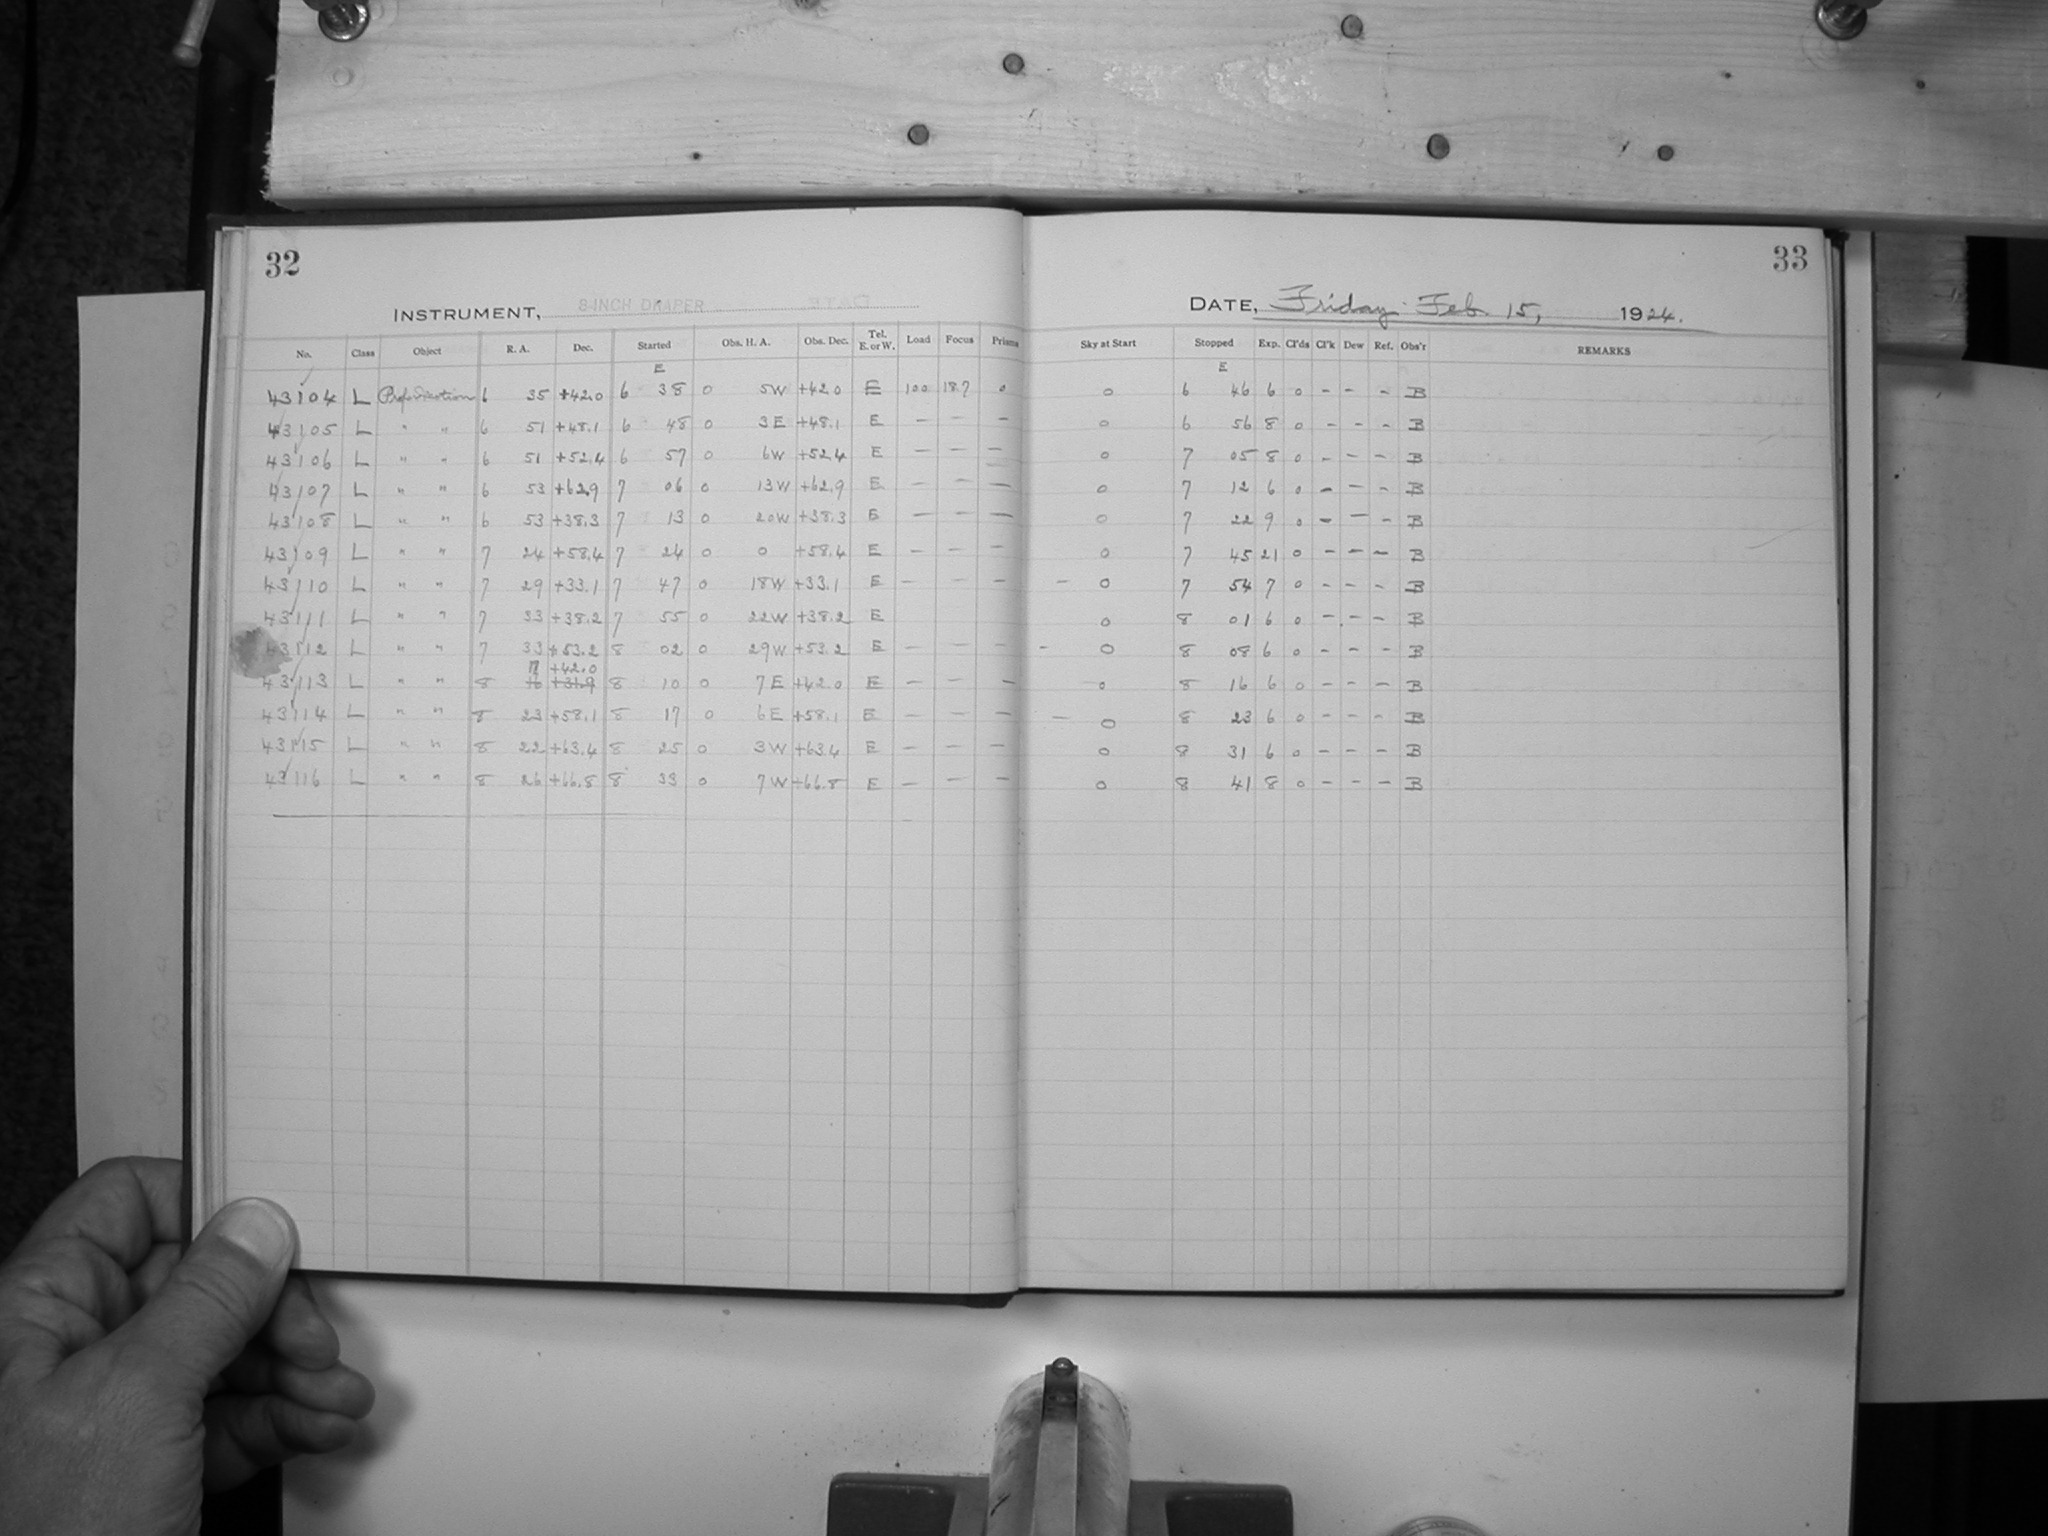 32
33
INSTRUMENT, 8-INCH DRAPER
DATE, Friday Feb. 15, 1924.
No. Class Object R. A. Dec. Started Obs. H. A. Obs. Dec. Tel. E. or W. Load Focus Prisms Sky at Start Stopped Exp. Cl'ds Cl'k Dew Ref. Obs'r REMARKS
E E
43104 L 6 35 +42.0 6 38 0 5W +42.0 E 100 18.7 0 0 6 46 6 0 - - - B
43105 L " " 6 51 +48.1 6 48 0 3E +48.1 E - - - 0 6 56 8 0 - - - B
43106 L " " 6 51 +52.4 6 57 0 6W +52.4 E - - - 0 7 05 8 0 - - - B
43107 L " " 6 53 +62.9 7 06 0 13W +62.9 E - - - 0 7 12 6 0 - - - B
43108 L " " 6 53 +38.3 7 13 0 20W +38.3 E - - - 0 7 22 9 0 - - - B
43109 L " " 7 24 +58.4 7 24 0 0 +58.4 E - - - 0 7 45 21 0 - - - B
43110 L " " 7 29 +33.1 7 47 0 18W +33.1 E - - - - 0 7 54 7 0 - - - B
43111 L " " 7 33 +38.2 7 55 0 22W +38.2 E 0 8 01 6 0 - - - B
43112 L " " 7 33 +53.2 8 02 0 29W +53.2 E - - - - 0 8 08 6 0 - - - B
17 +42.0
43113 L " " 8 16 +31.9 8 10 0 7E +42.0 E - - - 0 8 16 6 0 - - - B
43114 L " " 8 23 +58.1 8 17 0 6E +58.1 E - - - - 0 8 23 6 0 - - - B
43115 L " " 8 22 +63.4 8 25 0 3W +63.4 E - - - 0 8 31 6 0 - - - B
43116 L " " 8 26 +66.8 8 33 0 7W +66.8 E - - - 0 8 41 8 0 - - - B